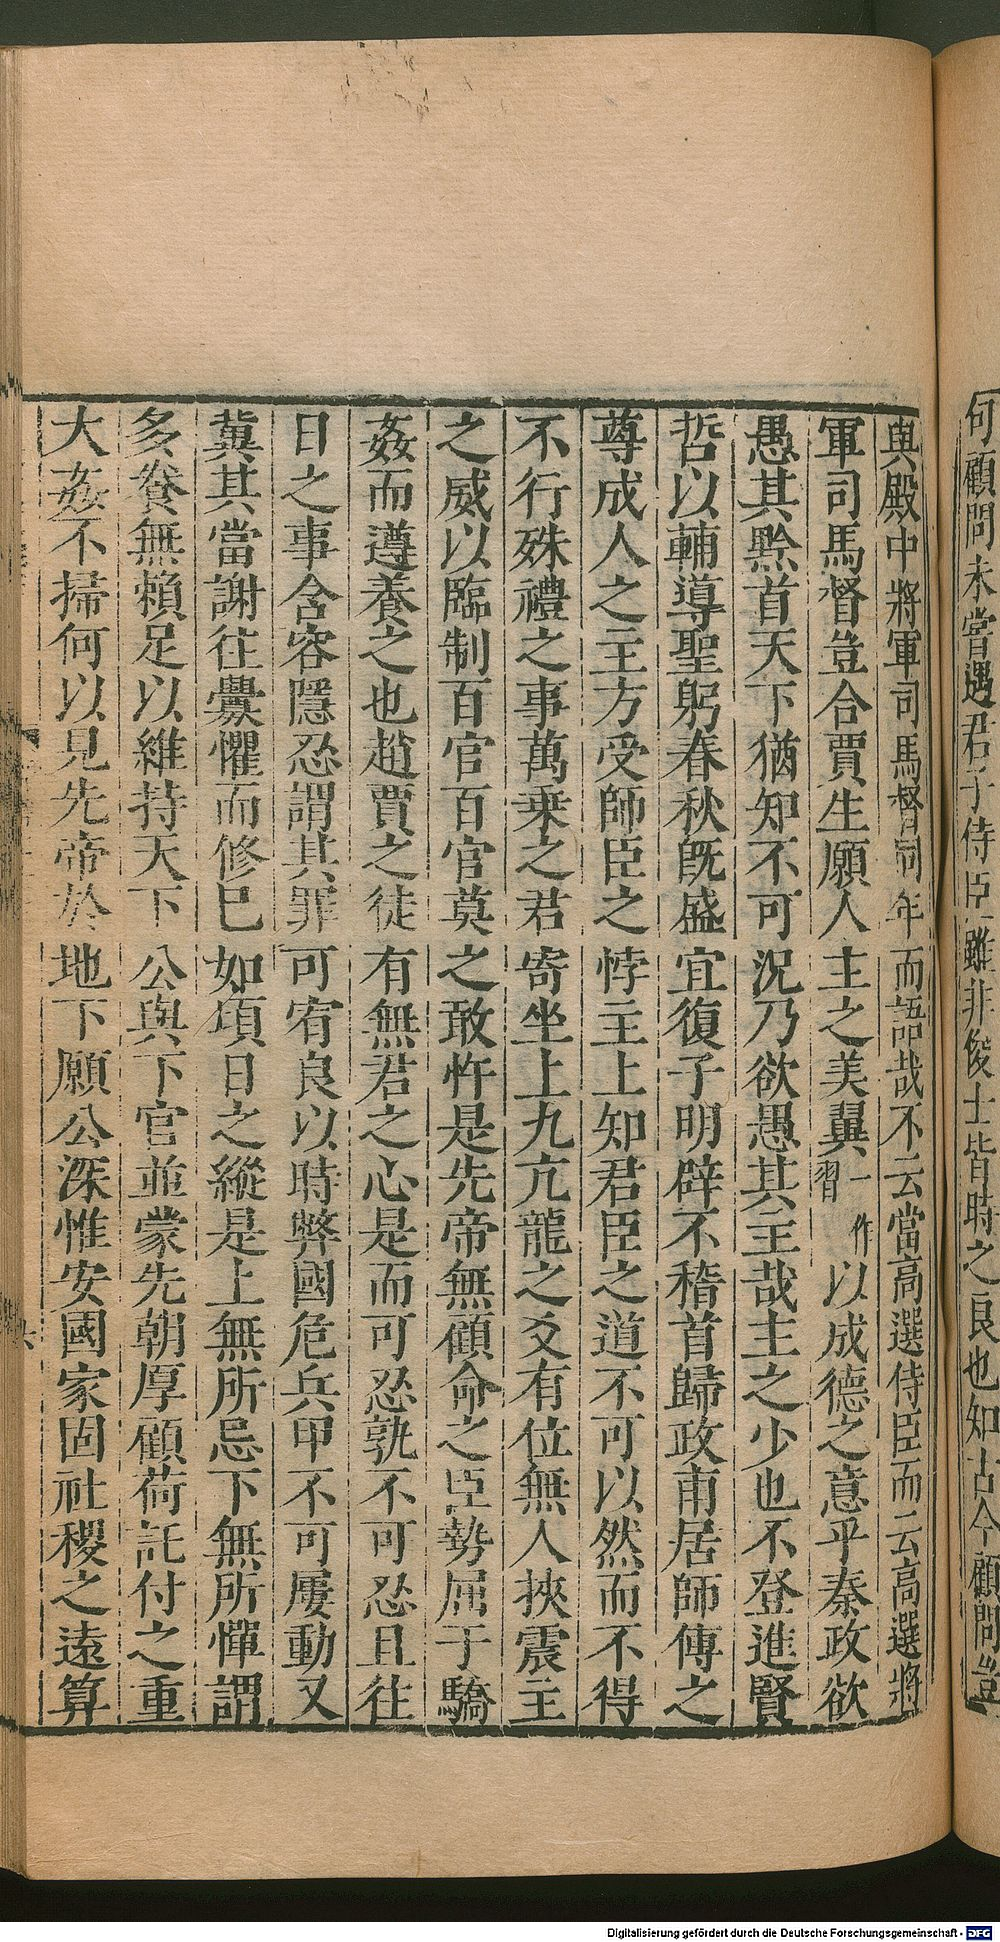 何顧問未嘗遇君子侍臣雖非俊士皆時之良也知古今顧問豈
與殿中將軍司馬督同年而語哉不云當高選侍臣而云高選將
軍司馬督豈合賈生願人主之美翼一作習以成德之意乎秦政欲
愚其黔首天下猶知不可況乃欲愚其主哉主之少也不登進賢
哲以輔導聖躬春秋旣盛宜復子明辟不稽首歸政甫居師傅之
尊成人之主方受師臣之悖主上知君臣之道不可以然而不得
不行殊禮之事萬乗之君寄坐上九亢龍之爻有位無人挾震主
之威以臨制百官百官莫之敢忤是先帝無顧命之臣勢屈于驕
姦而遵養之也趙賈之徒有無君之心是而可忍孰不可忍且往
日之事含容隱忍謂其罪可宥良以時弊國危兵甲不可屢動又
冀其當謝往釁懼而修巳如項日之縱是上無所忌下無所憚謂
多餐無賴足以維持天下公與下官並蒙先朝厚顧荷託付之重
大姦不掃何以見先帝於地下願公深惟安國家固社稷之遠算
Digitalisierung gefördert durch die Deutsche Forschungsgemeinschaft - DFG